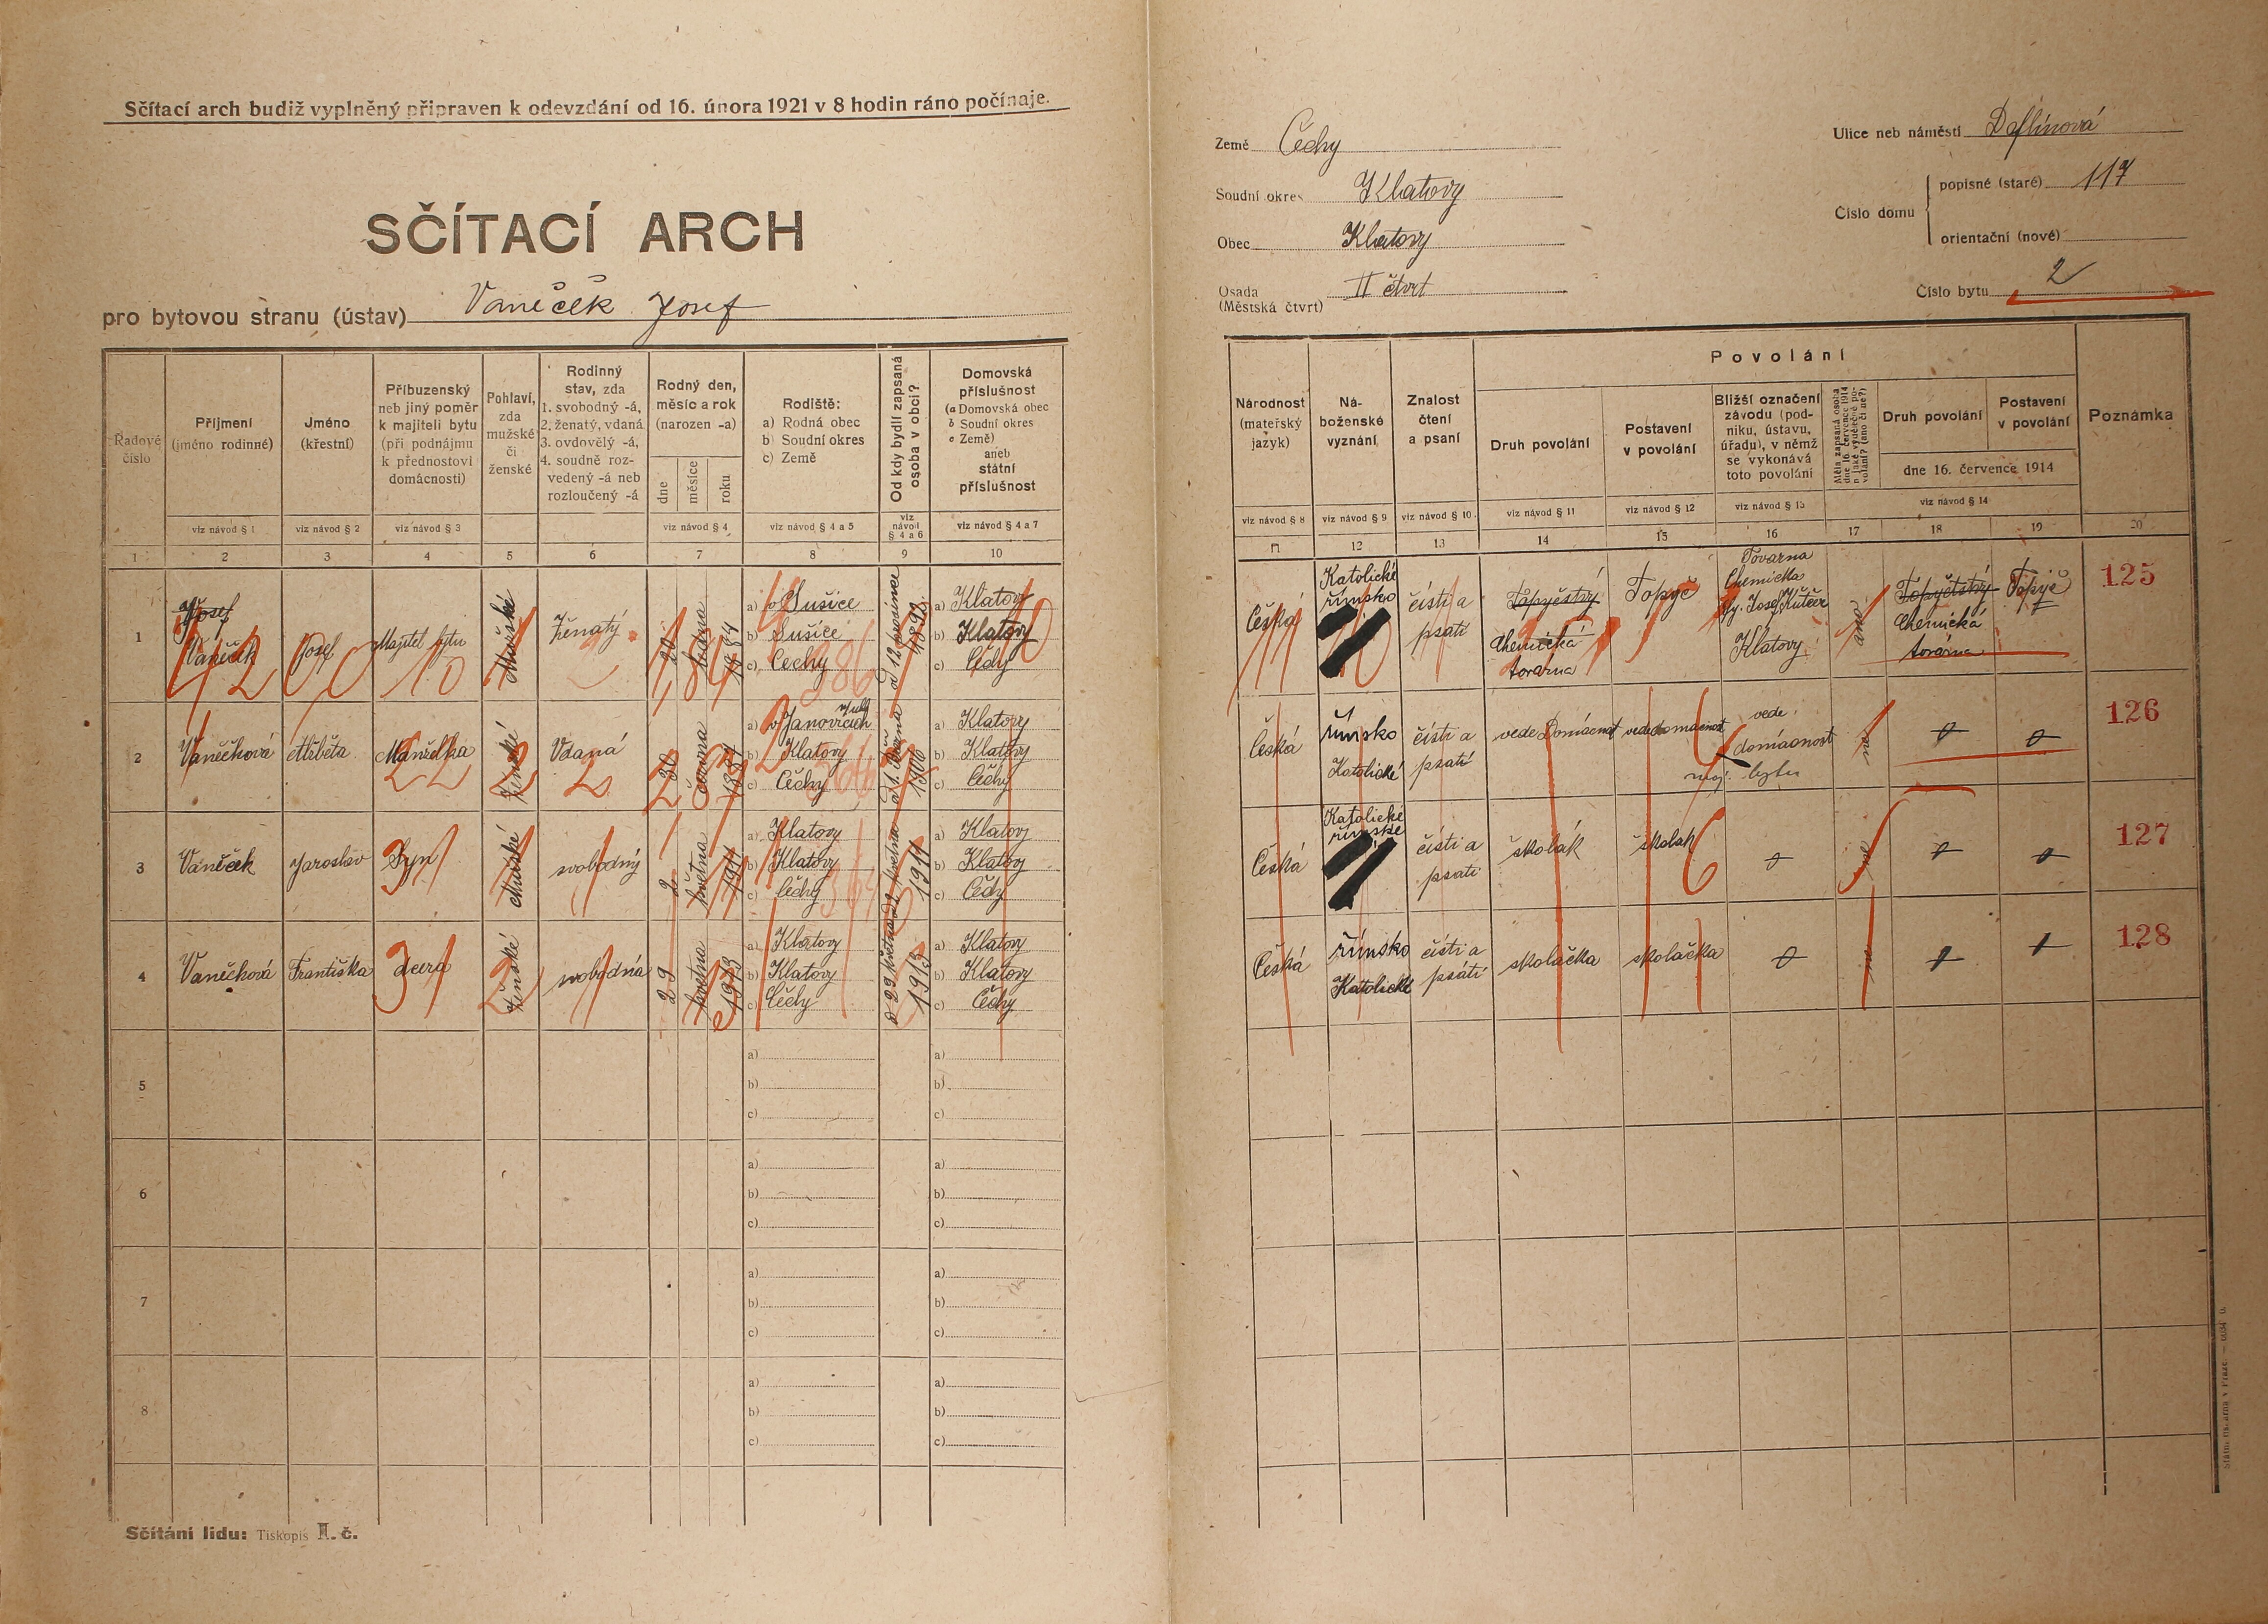 Sčítací arch budiž vyplněný připraven k odevzdání od 16. února 1921 v 8 hodin ráno počínaje.
SČÍTACÍ ARCH
pro bytovou stranu (ústav) Vaněček Josef
Země Čechy
Soudní okres Klatovy
Obec Klatovy
Osada (Městská čtvrť) II čtvrt
Ulice neb náměstí
Číslo domu
popisné (staré) 117
orientační (nové)
Číslo bytu 2
Řadové číslo
Příjmení (jméno rodinné)
Jméno (křestní)
Příbuzenský neb jiný poměr k majiteli bytu (při podnájmu k přednostovi domácnosti)
Pohlaví, zda mužské či ženské
Rodinný stav, zda 1. svobodný -á, 2. ženatý, vdaná 3. ovdovělý -á, 4. soudně rozvedený -á neb rozloučený -á
Rodný den, měsíc a rok (narozen -a)
dne měsíce roku
Rodiště:
a) Rodná obec
b) Soudní okres
c) Země
Od kdy bydlí zapsaná osoba v obci?
Domovská příslušnost
(a Domovská obec
b Soudní okres
c Země)
aneb státní příslušnost
viz návod § 1
viz návod § 2
viz návod § 3
viz návod § 4
viz návod § 4 a 5
viz návod § 4 a 6
viz návod § 4 a 7
1 2 3 4 5 6 7 8 9 10
Národnost (mateřský jazyk)
Náboženské vyznání
Znalost čtení a psaní
Povolání
Druh povolání
Postavení v povolání
Bližší označení závodu (podniku, ústavu, úřadu), v němž se vykonává toto povolání
Měla zapsaná osoba dne 16. července 1914 nějaké výdělečné povolání? (ano či ne?)
Druh povolání
Postavení v povolání
dne 16. července 1914
Poznámka
viz návod § 8
viz návod § 9
viz návod § 10
viz návod § 11
viz návod § 12
viz návod § 13
viz návod § 14
11 12 13 14 15 16 17 18 19 20
1
Josef
Vaněček
Josef
Majitel bytu
Mužské
Ženatý
20
ledna
1884
a) v Sušice
b) Sušice
c) Čechy
a) Klatovy
b) Klatovy
c) Čechy
Česká
Katolické
římsko
čísti a
psati
Topyčství
Chemická
továrna
Topyč
Tovarna
Chemicka
Josef
Klatovy
ano
Topyčství
Chemická
továrna
Topyč
125
2
Vaněčková
Alžběta
Manželka
Ženské
Vdaná
30
června
a) v Janovicích
b) Klatovy
c) Čechy
1900
a) Klatovy
b) Klatovy
c) Čechy
Česká
římsko
Katolické
čísti a
psati
vede Domácnost
vede domácnost
vede
domácnost
maj. bytu
ne
0
0
126
3
Vaněček
Jaroslav
Syn
Mužské
svobodný
2
května
1911
a) Klatovy
b) Klatovy
c) Čechy
1911
a) Klatovy
b) Klatovy
c) Čechy
Česká
Katolické
římské
čísti a
psati
školák
školak
0
ne
0
0
127
4
Vaněčková
Františka
dcera
Ženské
svobodná
29
května
1913
a) Klatovy
b) Klatovy
c) Čechy
29 května
1913
a) Klatovy
b) Klatovy
c) Čechy
Česká
římsko
Katolické
čísti a
psáti
skolačka
skolačka
0
ne
128
5
a)
b)
c)
a)
b)
c)
6
a)
b)
c)
a)
b)
c)
7
a)
b)
c)
a)
b)
c)
8
a)
b)
c)
a)
b)
c)
Sčítání lidu: Tiskopis II. č.